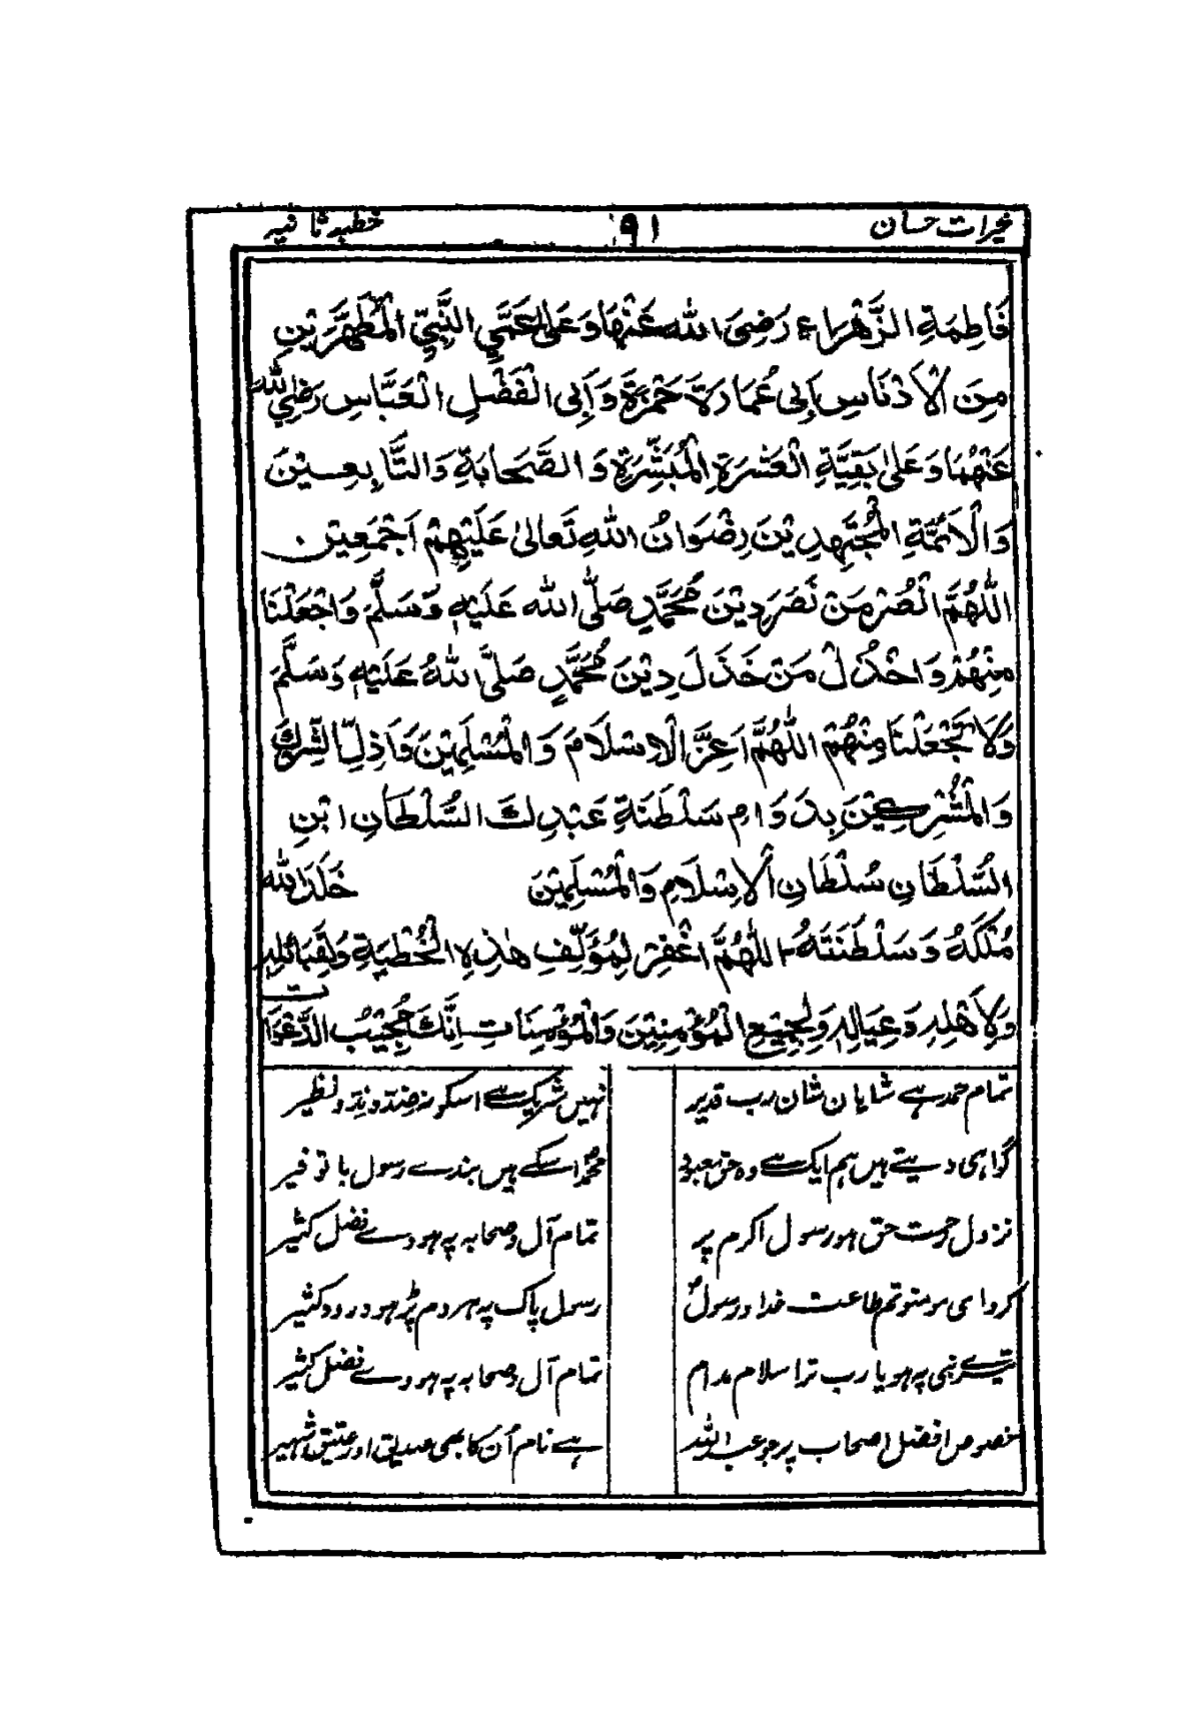 خیرات حسان ۹۱ خطبہ ثانیہ
فَاطِمَةِ الزَّهْرَاءِ رَضِيَ اللهُ عَنْهَا وَعَلٰى عَمَّيِ النَّبِيِّ الْمُطَهَّرَيْنِ
مِنَ الْاَدْنَاسِ اَبِى عُمَارَةَ حَمْزَةَ وَاَبِى الْفَضْلِ الْعَبَّاسِ رَضِيَ اللهُ
عَنْهُمَا وَعَلٰى بَقِيَّةِ الْعَشَرَةِ الْمُبَشَّرَةِ وَالصَّحَابَةِ وَالتَّابِعِيْنَ
وَالْاَئِمَّةِ الْمُجْتَهِدِيْنَ رِضْوَانُ اللهِ تَعَالٰى عَلَيْهِمْ اَجْمَعِيْنَ
اَللّٰهُمَّ انْصُرْ مَنْ نَصَرَ دِيْنَ مُحَمَّدٍ صَلَّى اللهُ عَلَيْهِ وَسَلَّمَ وَاجْعَلْنَا
مِنْهُمْ وَاخْذُلْ مَنْ خَذَلَ دِيْنَ مُحَمَّدٍ صَلَّى اللهُ عَلَيْهِ وَسَلَّمَ
وَلَا تَجْعَلْنَا مِنْهُمْ اَللّٰهُمَّ اَعِزَّ الْاِسْلَامَ وَالْمُسْلِمِيْنَ وَاَذِلَّ الشِّرْكَ
وَالْمُشْرِكِيْنَ بِدَوَامِ سَلْطَنَةِ عَبْدِكَ السُّلْطَانِ ابْنِ
السُّلْطَانِ سُلْطَانِ الْاِسْلَامِ وَالْمُسْلِمِيْنَ خَلَدَ اللهُ
مُلْكَهُ وَسَلْطَنَتَهُ اَللّٰهُمَّ اغْفِرْ لِمُؤَلِّفِ هٰذِهِ الْخُطْبَةِ وَلِقَبَائِلِهِ
وَلِاَهْلِهِ وَعِيَالِهِ وَلِجَمِيْعِ الْمُؤْمِنِيْنَ وَالْمُؤْمِنَاتِ اِنَّكَ مُجِيْبُ الدَّعْوَات
تمام حمد ہے شایان شان رب قدیر نہیں شریک ہے اسکو نہ ضد و ند و نظیر
گواہی دیتے ہیں ہم ایک ہے وہ حق معبود محمدؐ اسکے ہیں بندے رسول با توقیر
نزول رحمت حق ہو رسول اکرم پر تمام آل و صحابہ پہ ہووے فضل کثیر
کرو ای مومنو تم طاعت خدا و رسولؐ رسول پاک پہ ہر دم پڑہو درود کثیر
تیرے نبی پہ ہو یا رب ترا سلام مدام تمام آل و صحابہ پہ ہووے فضل کثیر
خصوص افضل اصحاب پر جو عبد اللہ ہے نام اُن کا بھی صدیق اور عتیق شہیر